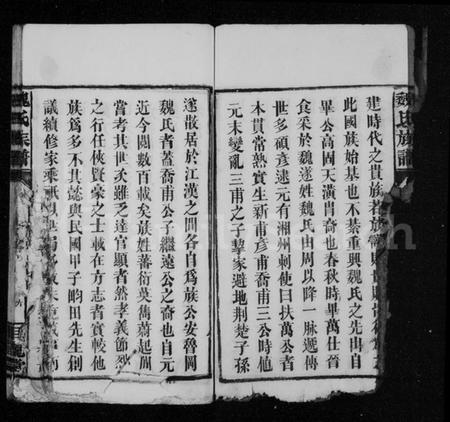 魏氏族譜
建時代之貴族若族
此國族始基也不綦重與魏氏之先出自
畢公高固天潢胄裔也春秋時畢萬仕晉
食采於魏遂姓魏氏由周以降一脈遞傳
世多碩彦逮元有湘州刺使曰扶萬公者
本貫常熟實生新甫彦甫喬甫三公時他
元末變亂三甫之子挈家避地荆楚子孫
遂散居於江漢之間各自爲族公安魯岡
魏氏者蓋喬甫公子繼遠公之裔也自元
迄今閱數百載矣族姓蕃衍英儁蔚起周
嘗考其世次雖乏達官顯者然孝義節烈
之行任俠賢豪之士載在方志者實較他
族爲多不其懿與民國甲子畇田先生創
議續修家乘
魏氏族譜